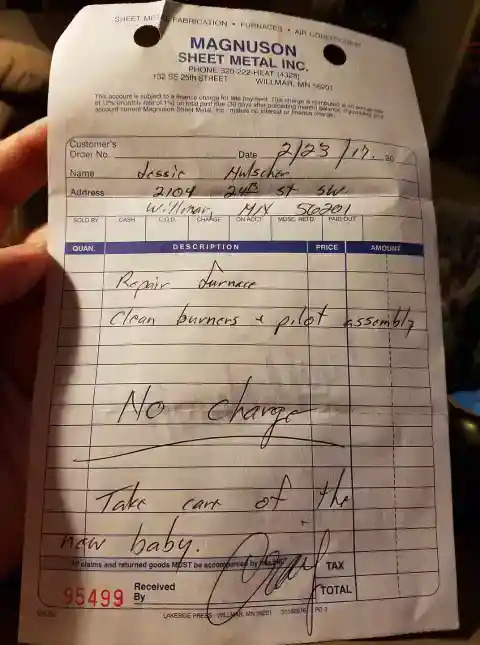 SHEET METAL FABRICATION • FURNACES • AIR CONDITIONING
MAGNUSON
SHEET METAL INC.
PHONE 320-222-HEAT (4328)
132 SE 25th STREET WILLMAR, MN 56201
This account is subject to a finance charge for late payment. This charge is computed
account current Magnuson Sheet Metal, Inc. makes no interest or finance charge.
Customer's
Order No. Date 2/23/17. 20
Name Jessie Hulscher
Address 2104 24th St SW
Willmar, MN 56201
SOLD BY CASH C.O.D. CHARGE ON ACCT. MDSE. RETD. PAID OUT
QUAN. DESCRIPTION PRICE AMOUNT
Repair furnace
Clean burners & pilot assembly
No Charge
Take care of the
new baby.
All claims and returned goods MUST be accompanied by this bill.
TAX
95499 Received By TOTAL
LAKESIDE PRESS - WILLMAR, MN 56201